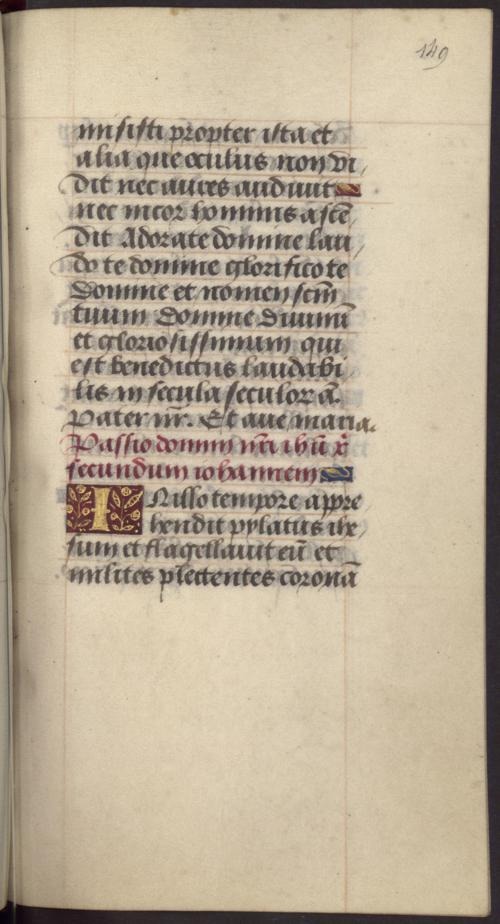 149
misisti propter ista et
alia que oculus non vi
dit nec aures audiuit
nec incor hominis ascē
dit Adorate domine lau
do te domine glorifico te
domine et nomen scm̄
tuum Domine Diuinū
et gloriosissimum qui
est benedictus laudabi
lis in secula seculoꝝ a.
Pater nr̄. Et aue maria.
Passio domini nr̄i ihū x̄
secundum iohannem
IN illo tempore appre
hendit pylatus ihe
sum et flagellauit eū et
milites plectentes coronā